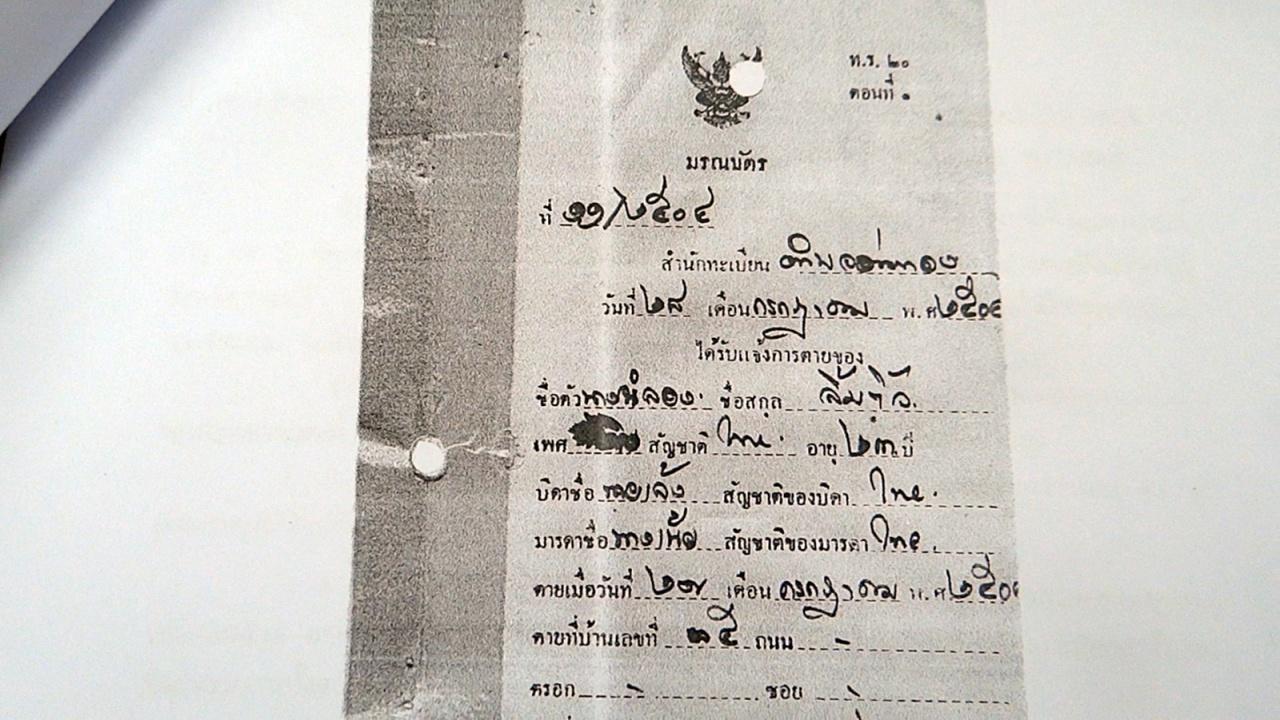 ท.ร. ๒๐
ตอนที่ ๑
มรณบัตร
ที่ ๑๑/๒๕๐๔
สำนักทะเบียน
วันที่ ๒๘ เดือน กรกฎาคม พ.ศ. ๒๕๐๔
ได้รับแจ้งการตายของ
ชื่อตัว ชื่อสกุล
เพศ สัญชาติ ไทย. อายุ ๒๓ ปี
บิดาชื่อ สัญชาติของบิดา ไทย.
มารดาชื่อ สัญชาติของมารดา ไทย.
ตายเมื่อวันที่ ๒๗ เดือน กรกฎาคม พ.ศ. ๒๕๐๔
ตายที่บ้านเลขที่ ถนน -
ตรอก - ซอย -